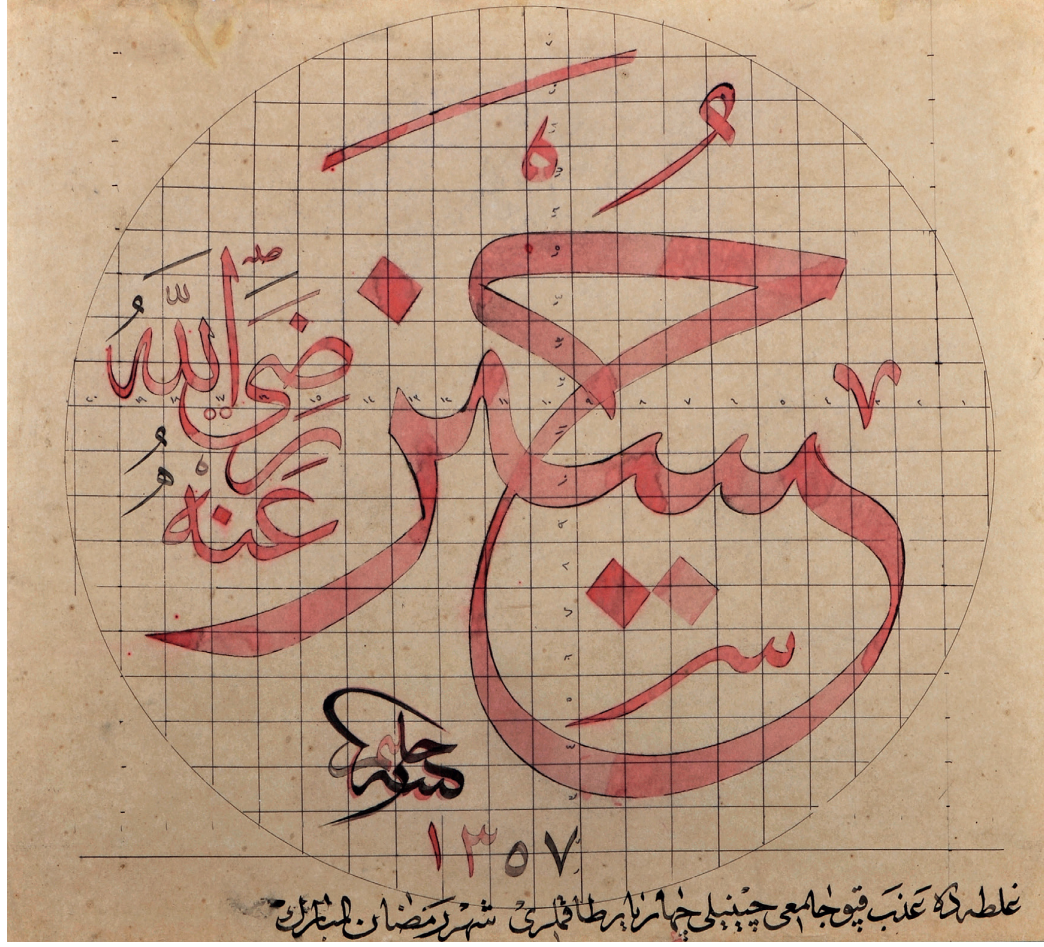 حسين
رضي الله
عنه
حليم
١٣٥٧
غلطه ده عذب قپو جامعی چینیلی چهاریار طاقملری شهر رمضان المبارك